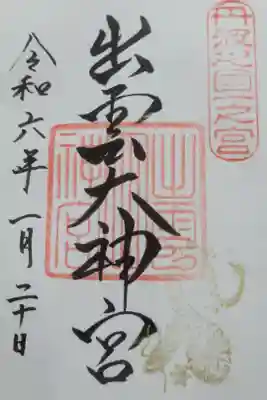 丹波國一之宮
出雲大神宮
令和六年一月二十日